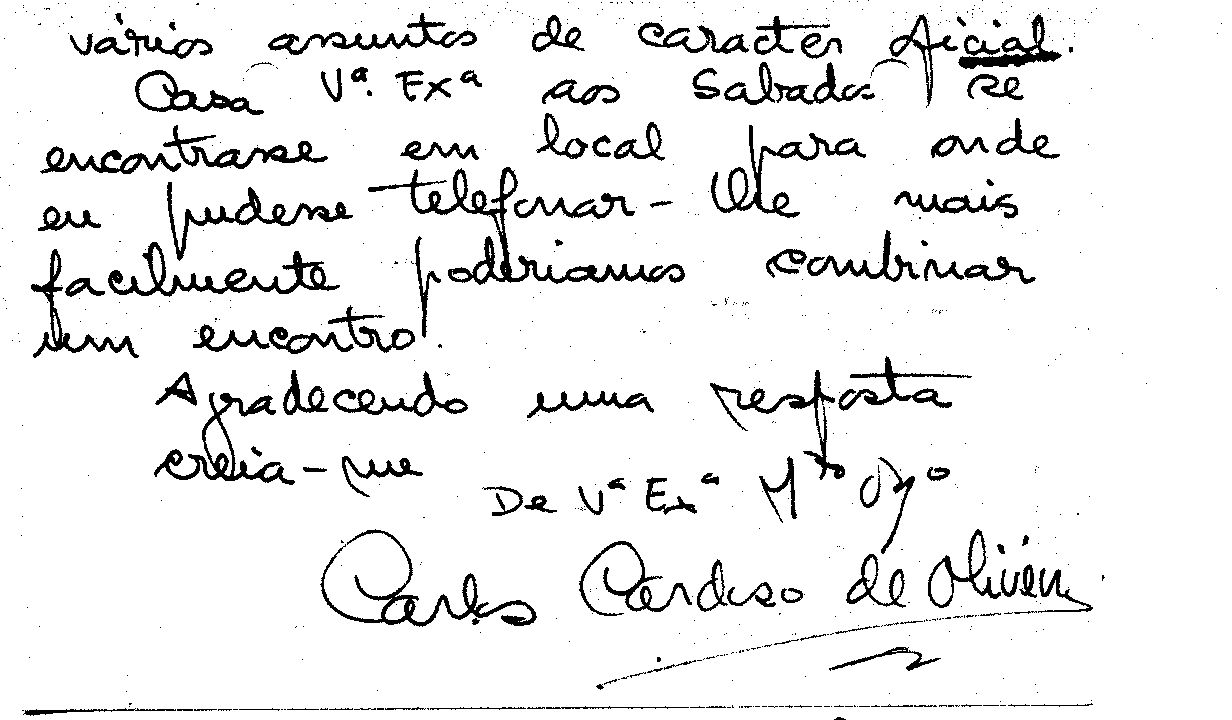 vários assuntos de caracter oficial.
Caso Vª. Exª aos Sabados se
encontrasse em local para onde
eu pudesse telefonar-lhe mais
facilmente poderiamos combinar
um encontro.
Agradecendo uma resposta
creia-me
De Vª Exª Mto Obgo
Carlos Cardoso de Oliveira